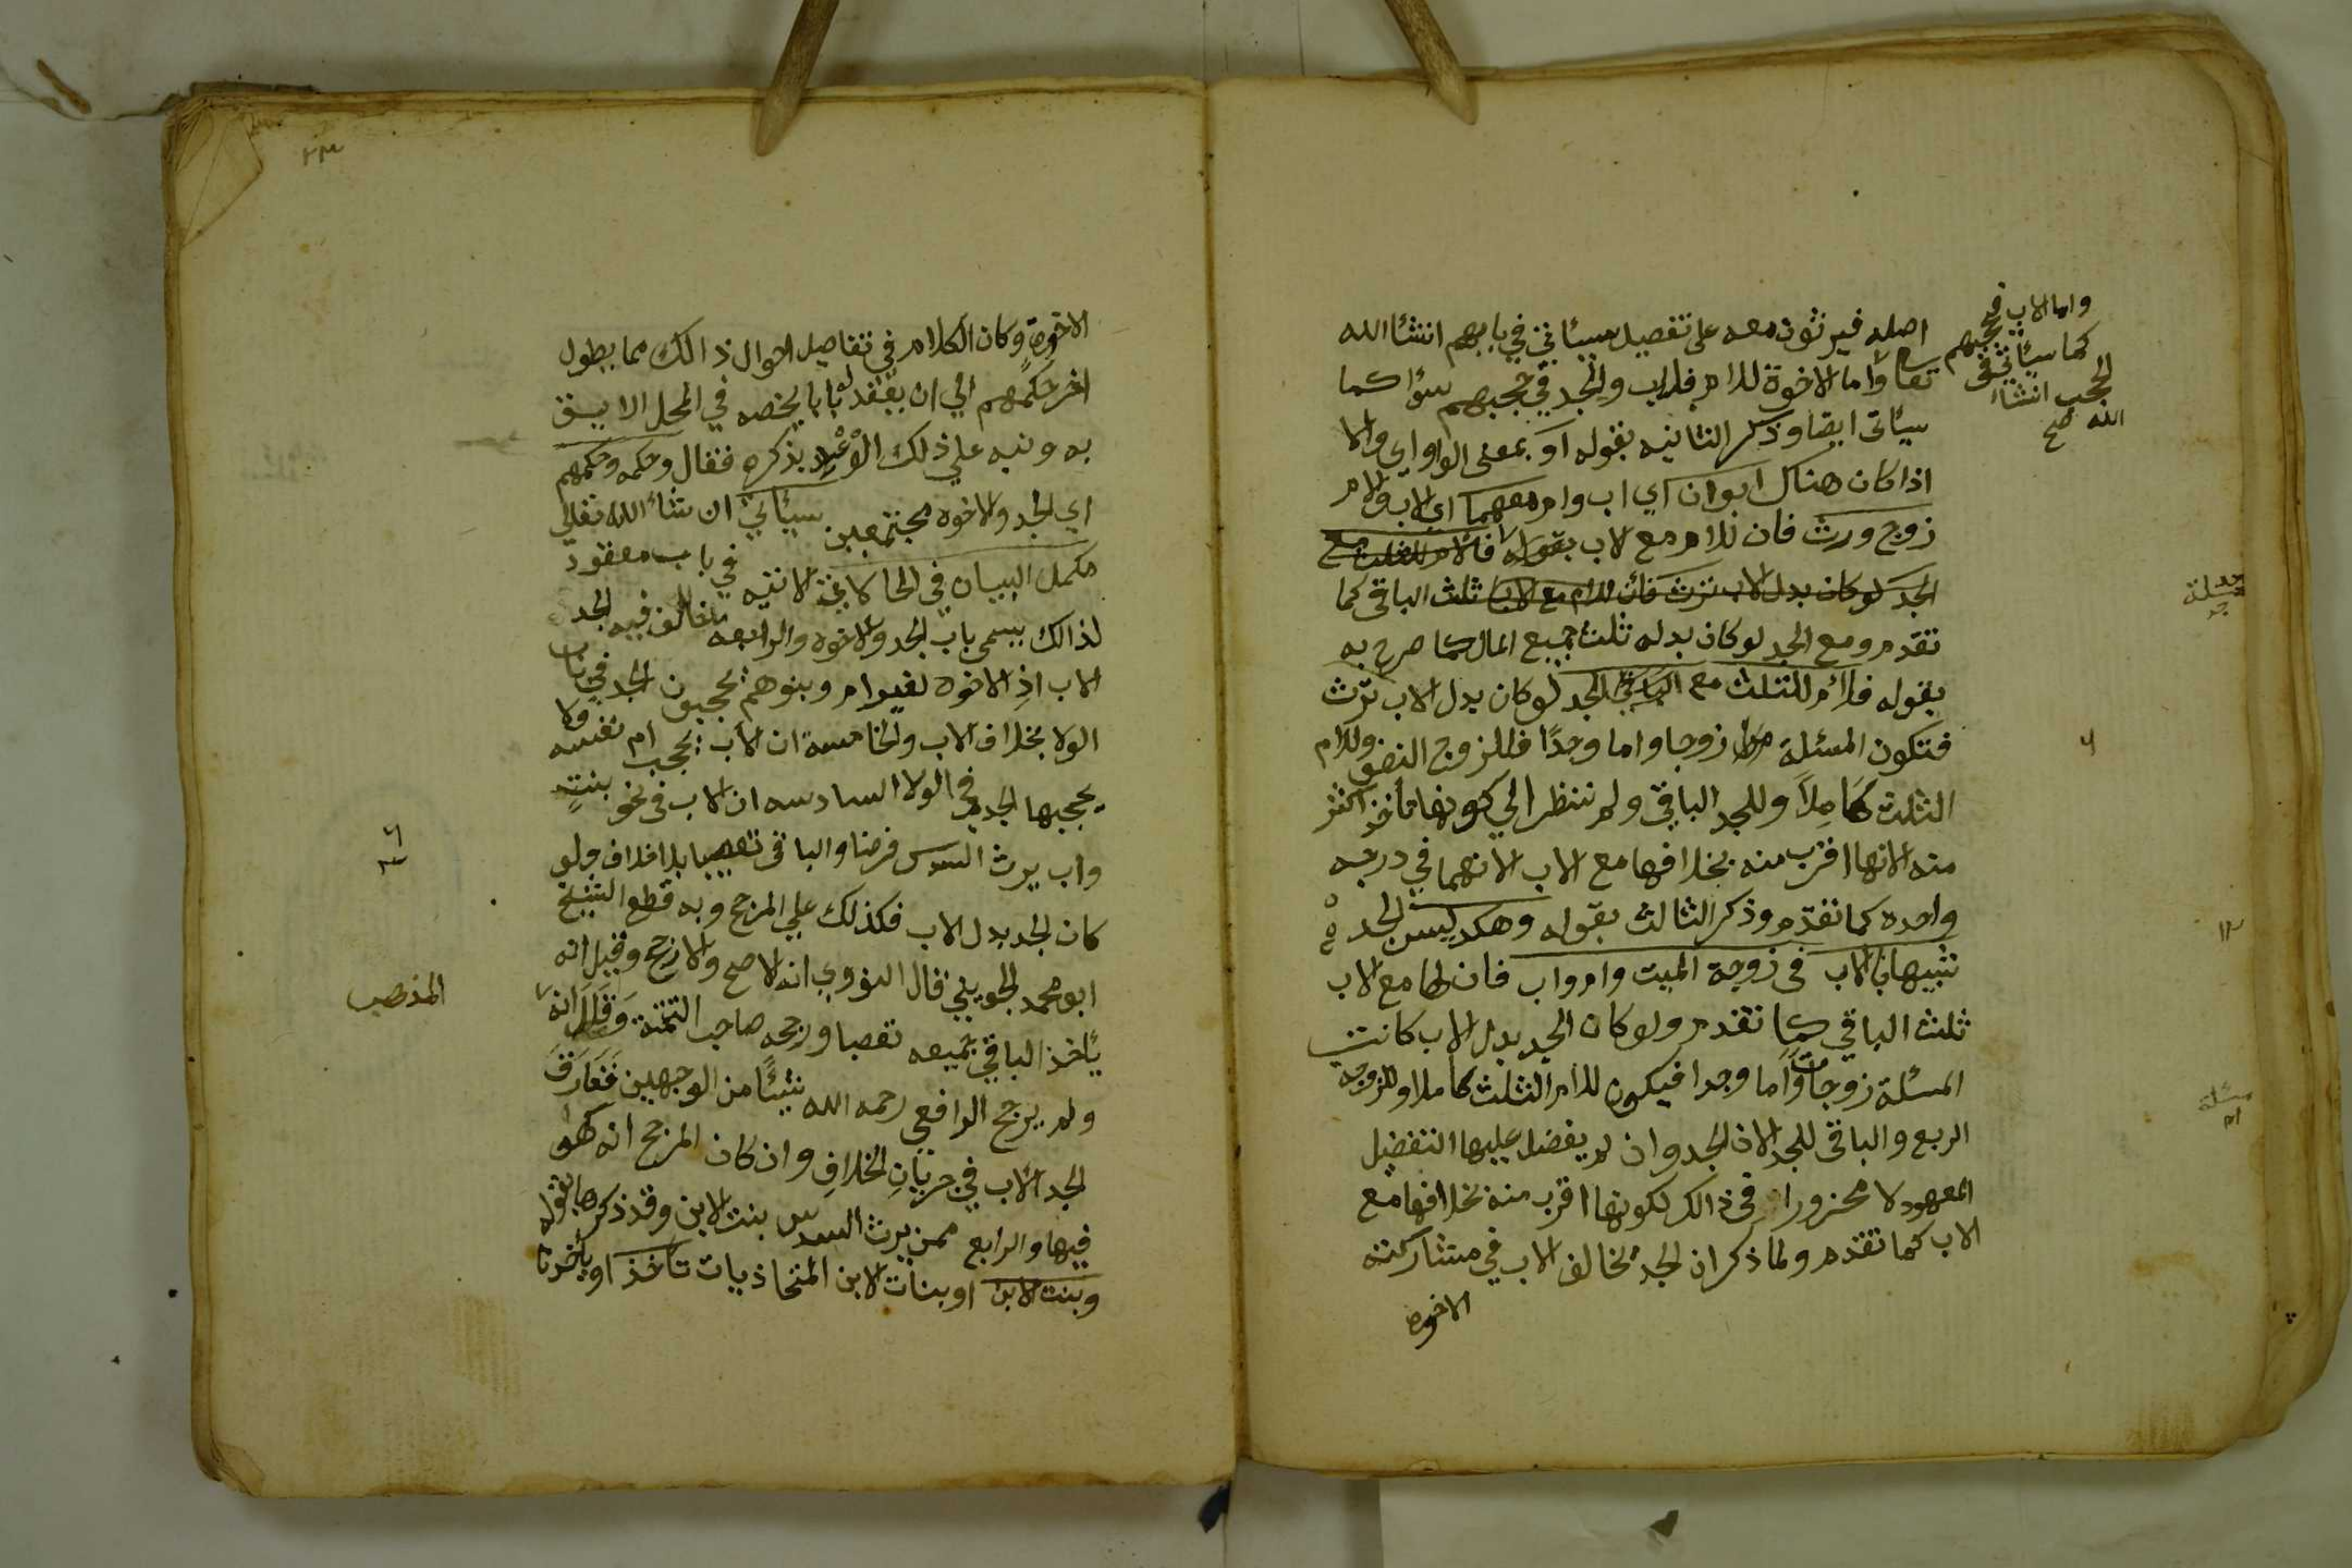 واما الاب فيحجبهم
كما سيأتي في
الحجب انشاء
الله صح
اصله فيرثون معه على تفصيل سيأتي في بابهم انشا الله
تعا واما الاخوة للام فلاب والجد في حجبهم سوا كما
سيأتى ايضا وذكر الثانيه بقوله او بمعنى الواو اي والا
اذا كان هناك ابوان اي اب وام معهما اي الاب والام
زوج ورث فان للام مع لاب بقوله فالام للثلث مع
الجد لو كان بدل الاب ترث فان للام مع الاب ثلث الباقى كما
تقدم ومع الجد لو كان بدله ثلث جميع المال كما صرح به
بقوله فلأم للثلث مع الجد لو كان بدل الاب ترث
فتكون المسئلة زوجا واما وجدًا فللزوج النصف وللام
الثلث كَامِلاً وللجد الباقي ولم ننظر الي كونها تأخذ اكثر
منه لانها اقرب منه بخلافها مع الاب لانهما في درجه
واحده كما تقدم وذكر الثالث بقوله وهكذ ليس الجد
شبيها بالاب فى زوجة الميت وام واب فان لها مع الاب
ثلث الباقي كما تقدم ولو كان الجد بدل الاب كانت
المسئلة زوجات واما وجدا فيكون للام الثلث كاملا وللزوجه
الربع والباقى للجد لان الجد وان لم يفضل عليها التفضيل
المعهود لا محزورا فى ذالك لكونها اقرب منه بخلافها مع
الاب كما تقدم ولما ذكر ان الجد يخالف الاب في مشاركته
الاخوه
مسئلة
٦
١٢
مسئلة
ام
الاخوة وكان الكلام في تفاصيل احوال ذالك مما يطول
اخر حكمهم الي ان يعقد له بابا يخصه في المحل الا يسق
به ونبه علي ذلك الوعْد بذكره فقال وحكمه وحكمهم
اي الجد والاخوه مجتمعين سيأتي ان شأ الله تعالى
مكمل البيان في الحالات لاتيه في باب معقود
لذالك يسمى باب الجد والاخوه والرابعه مخالف فيه الجد
الاب اذِ الاخوه لغير ام وبنوهم يحجبون الجد في باب
الولا بخلاف الاب والخامسة ان الأب يحجب ام نفسه ولا
يحجبها الجد في الولا السادسه ان الاب فى نحو بنتٍ
واب يرث السدس فرضا والباقى تعصيبا بلا خلاف ولو
كان الجد بدل الاب فكذلك علي المرجح وبه قطع الشيخ
ابو محمد الجويني قال النووي انه لاصح والارجح وقيل انه
يأخذ الباقي جميعه تعصبا ورجحه صاحب التتمة وَقَالَ انه
ولم يرجح الرافعي رحمه الله شيئًا من الوجهين فَفَارَقَ
الجد الأب في جريَانِ الخلافِ وان كان المرجح انه كهو
فيها والرابع ممن يرث السدس بنت الابن وقد ذكرها بقوله
وبنت لابن او بنات الابن المتحاذيات تأخذ او يأخذنا
٢٣
٦
٣
المذهب